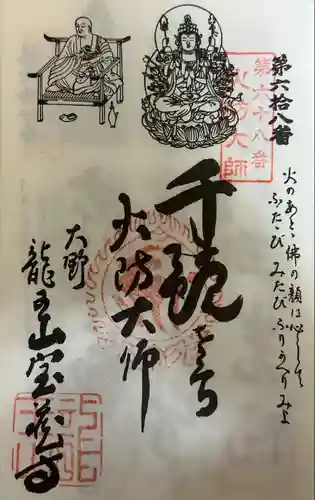 第六拾八番
第六十八番
火防大師
火のあとゝ佛の顔は心して
ふたゝび みたび ふりかへりみよ
千観
火防大師
大野
龍王山宝蔵寺